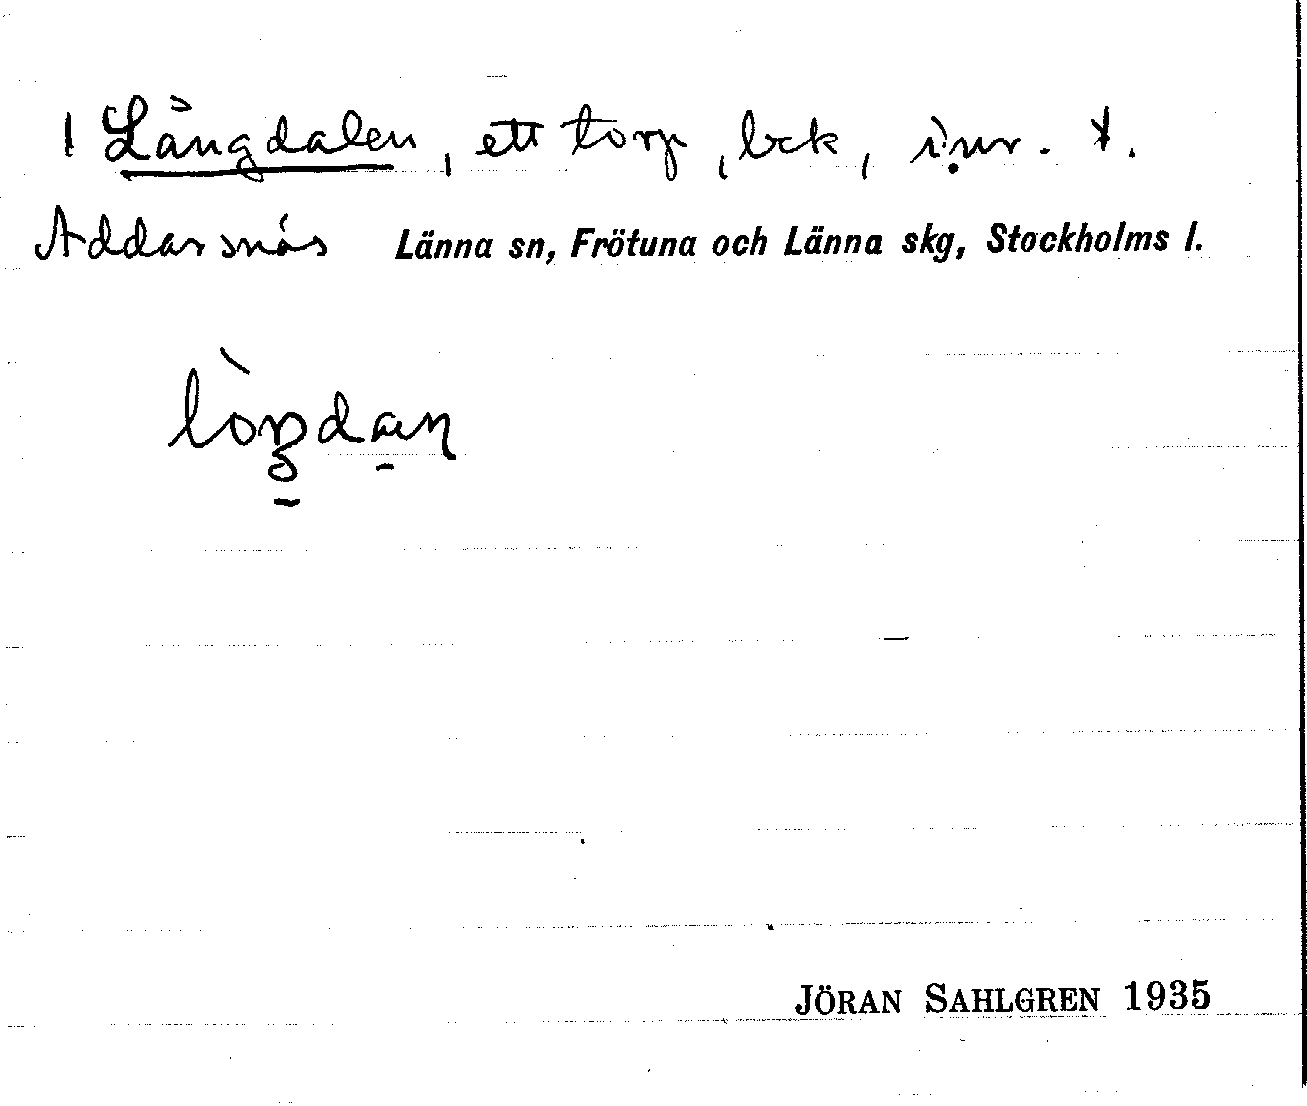 1 Långdalen, ett torp, bek,
Addarsnäs Länna sn, Frötuna och Länna skg, Stockholms l.
JÖRAN SAHLGREN 1935